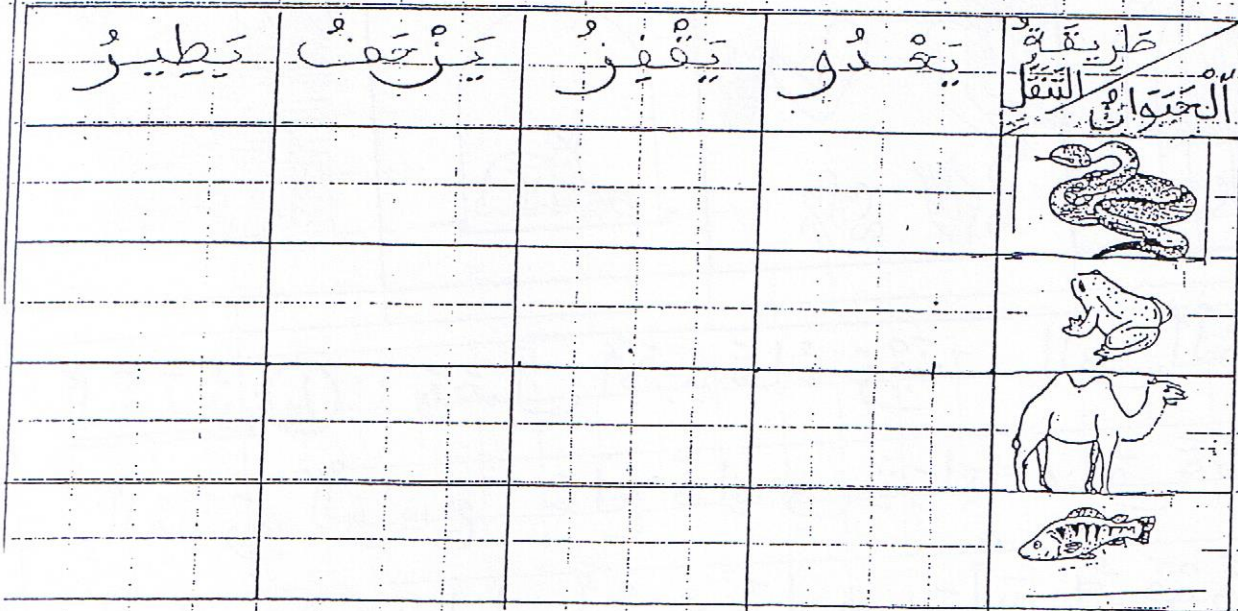 طَرِيقَةُ التَّنَقُّلِ
الْحَيَوَانُ
يَعْدُو
يَقْفِزُ
يَزْحَفُ
يَطِيرُ